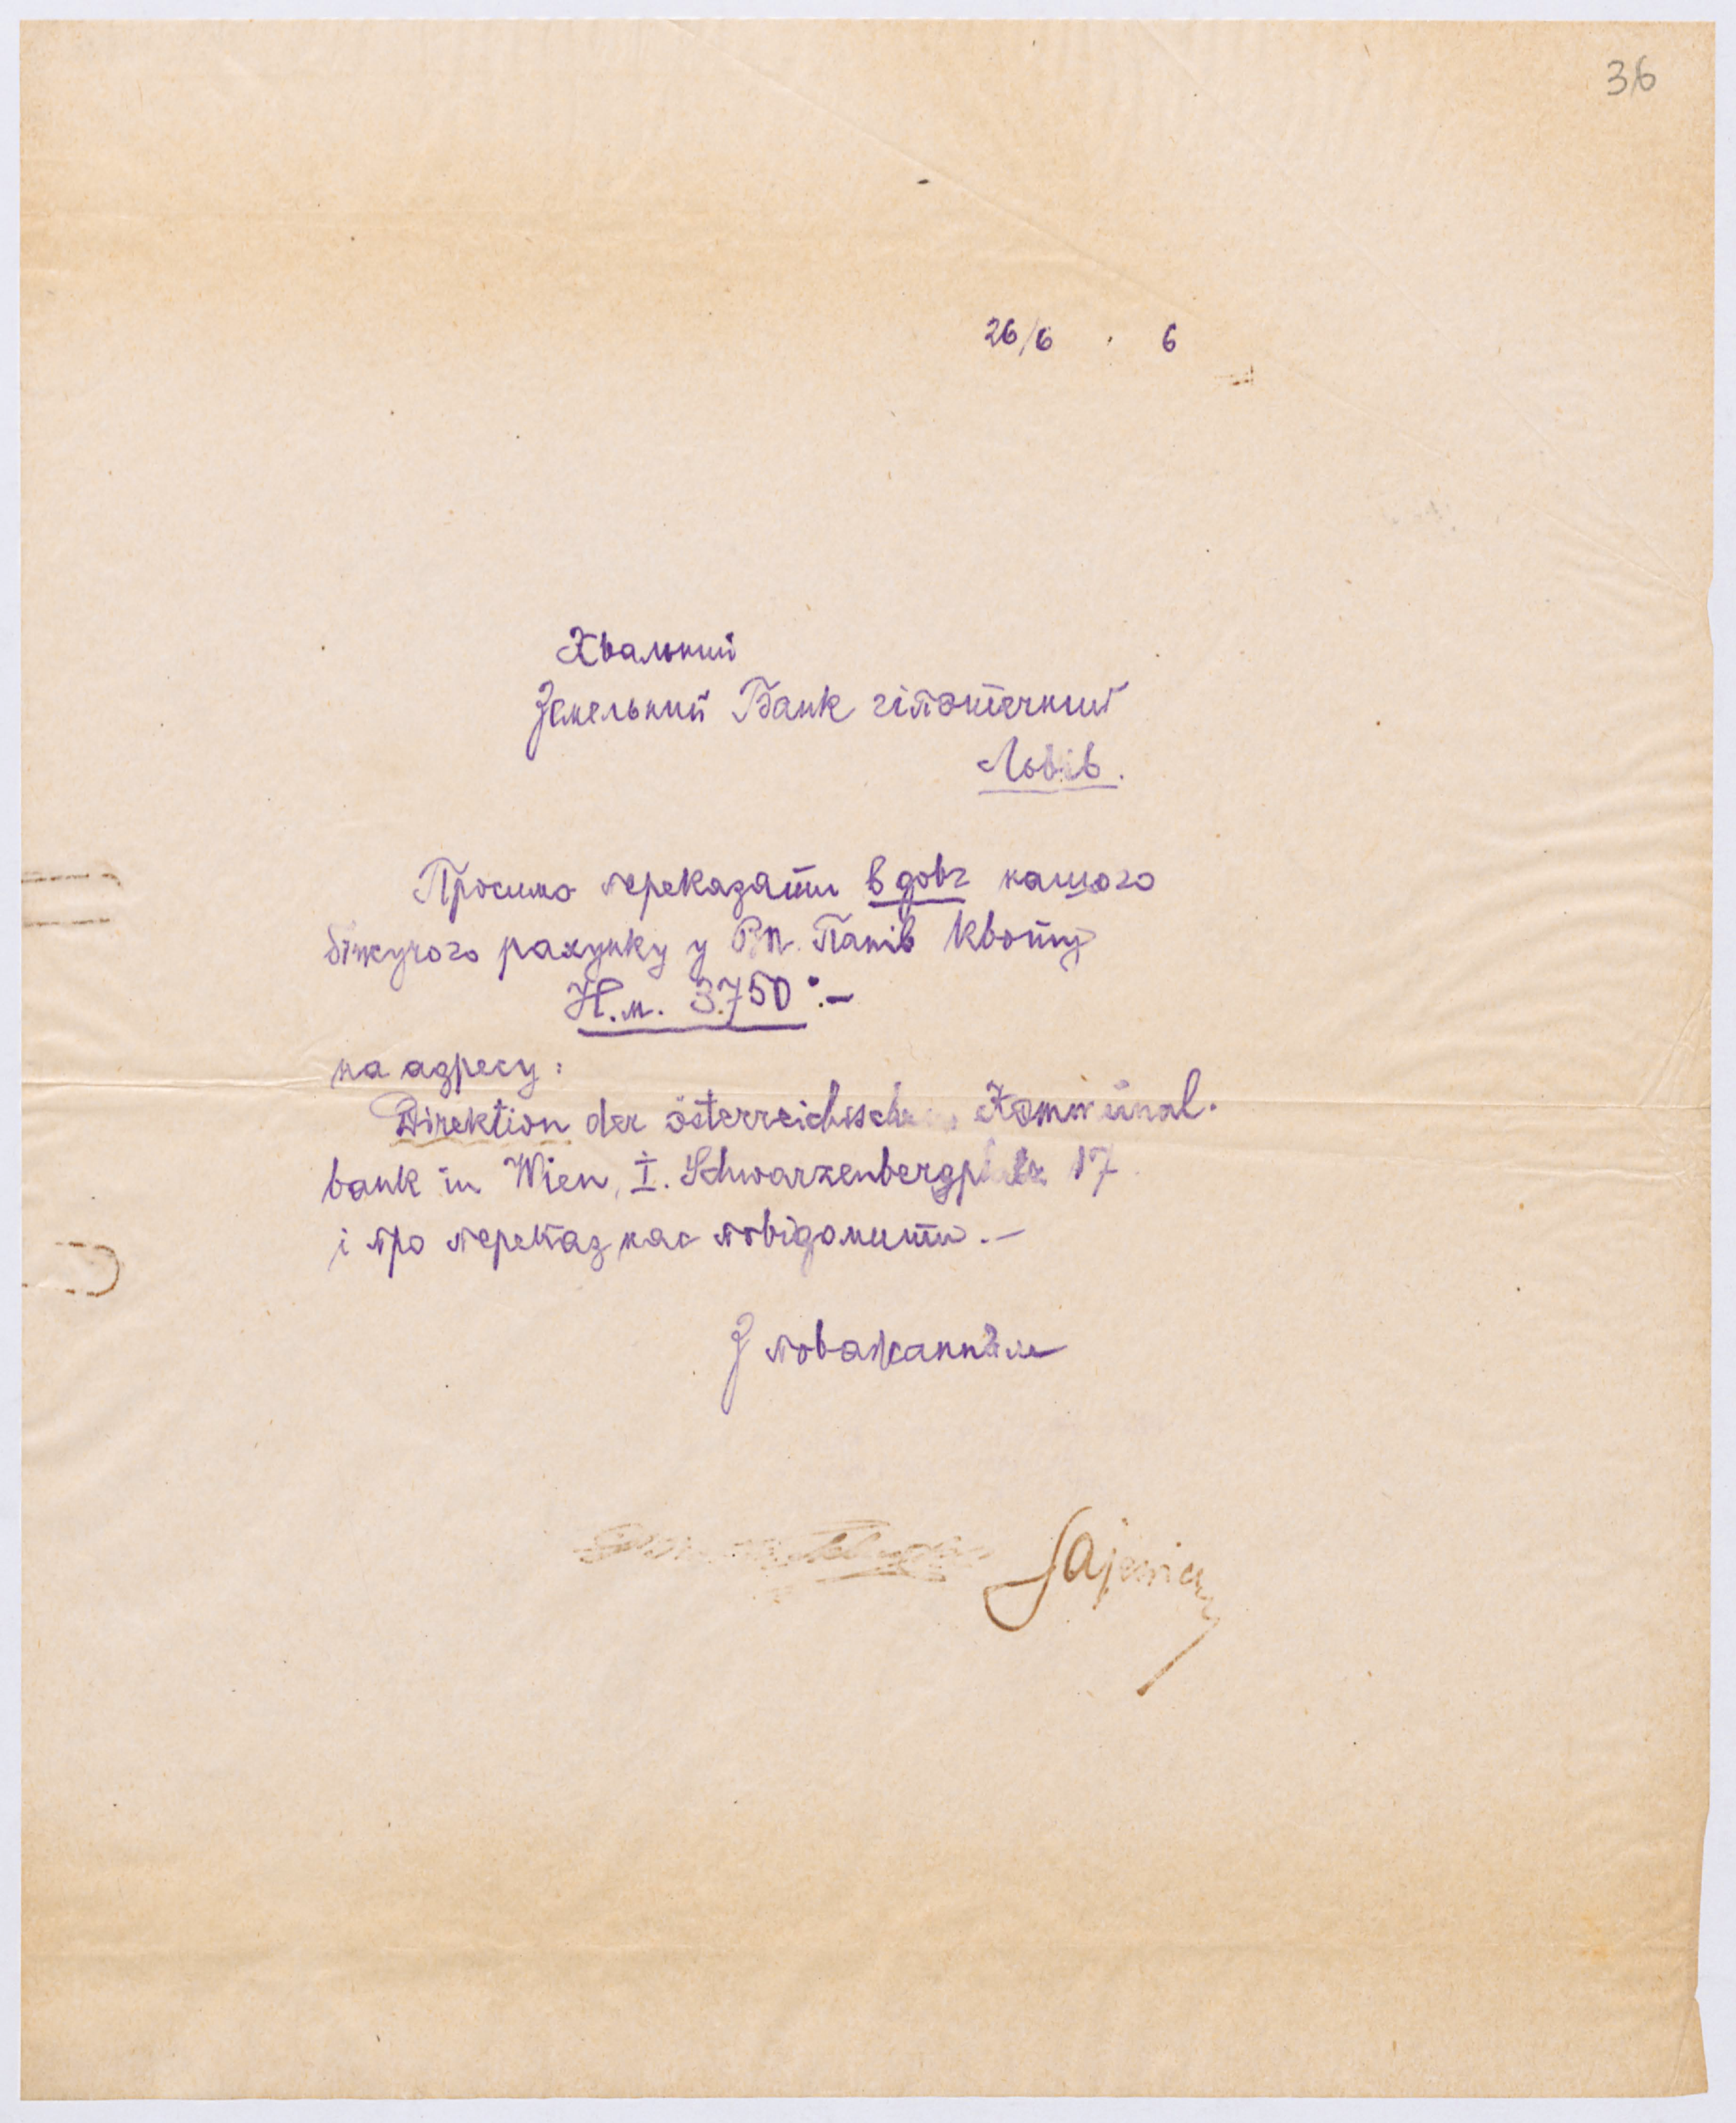 36
26/6 . 6
Хвальний
Земельний Банк гіпотечний
Львів.
Просимо переказати в довг нашого
біжучого рахунку у Вп. Панів квоту
Н.м. 3.750:-
на адресу:
Direktion der österreichischen Kommunal-
bank in Wien, I. Schwarzenbergplatz 17
і про переказ нас повідомити.-
З поважаннєм